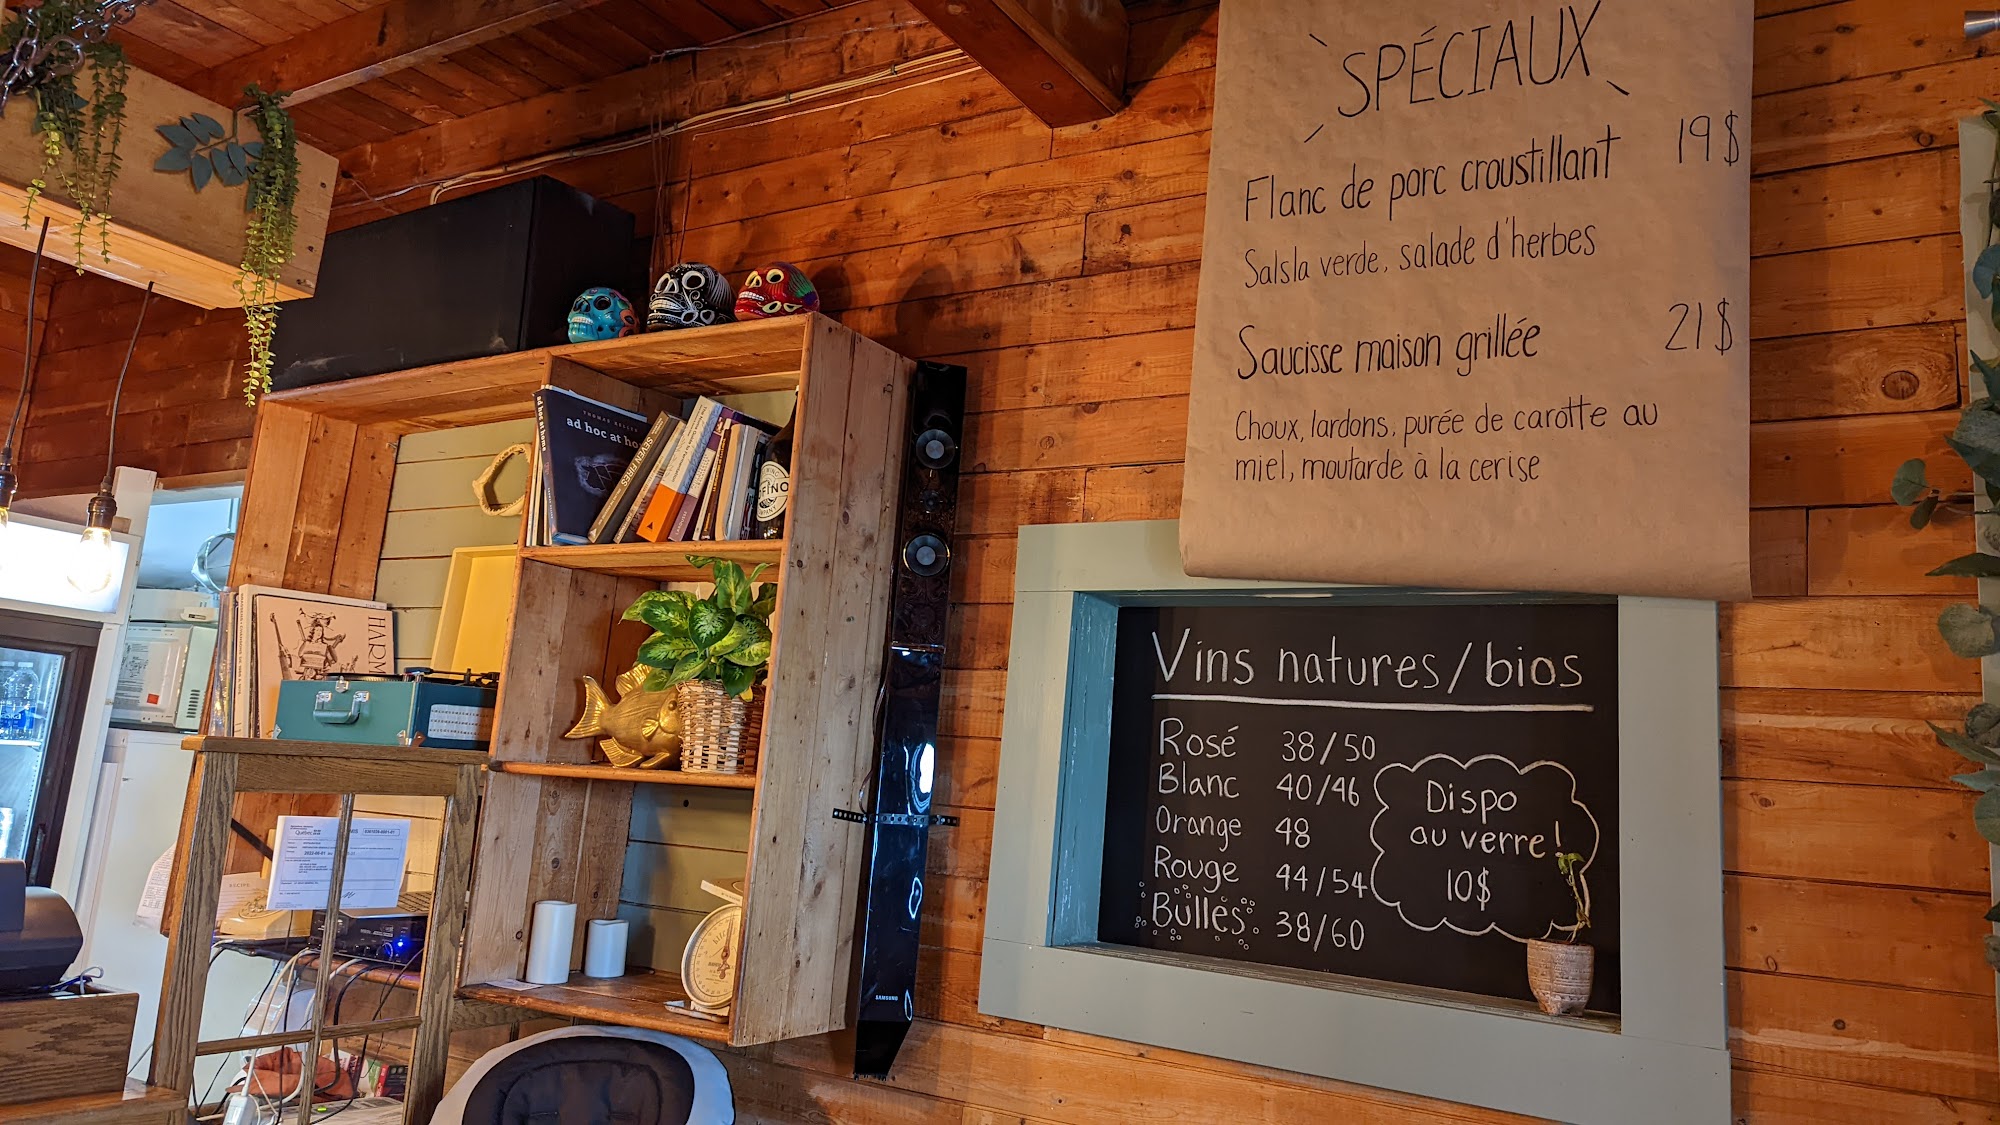 SPÉCIAUX
Flanc de porc croustillant 19$
Salsla verde, salade d'herbes
Saucisse maison grillée 21$
Choux, lardons, purée de carotte au
miel, moutarde à la cerise
Vins natures/bios
Rosé 38/50
Blanc 40/46
Orange 48
Rouge 44/54
Bulles 38/60
Dispo
au verre!
10$
THOMAS KELLER
ad hoc at home
ad hoc at ho
SEVEN FIRES
HARM
SAMSUNG
Québec